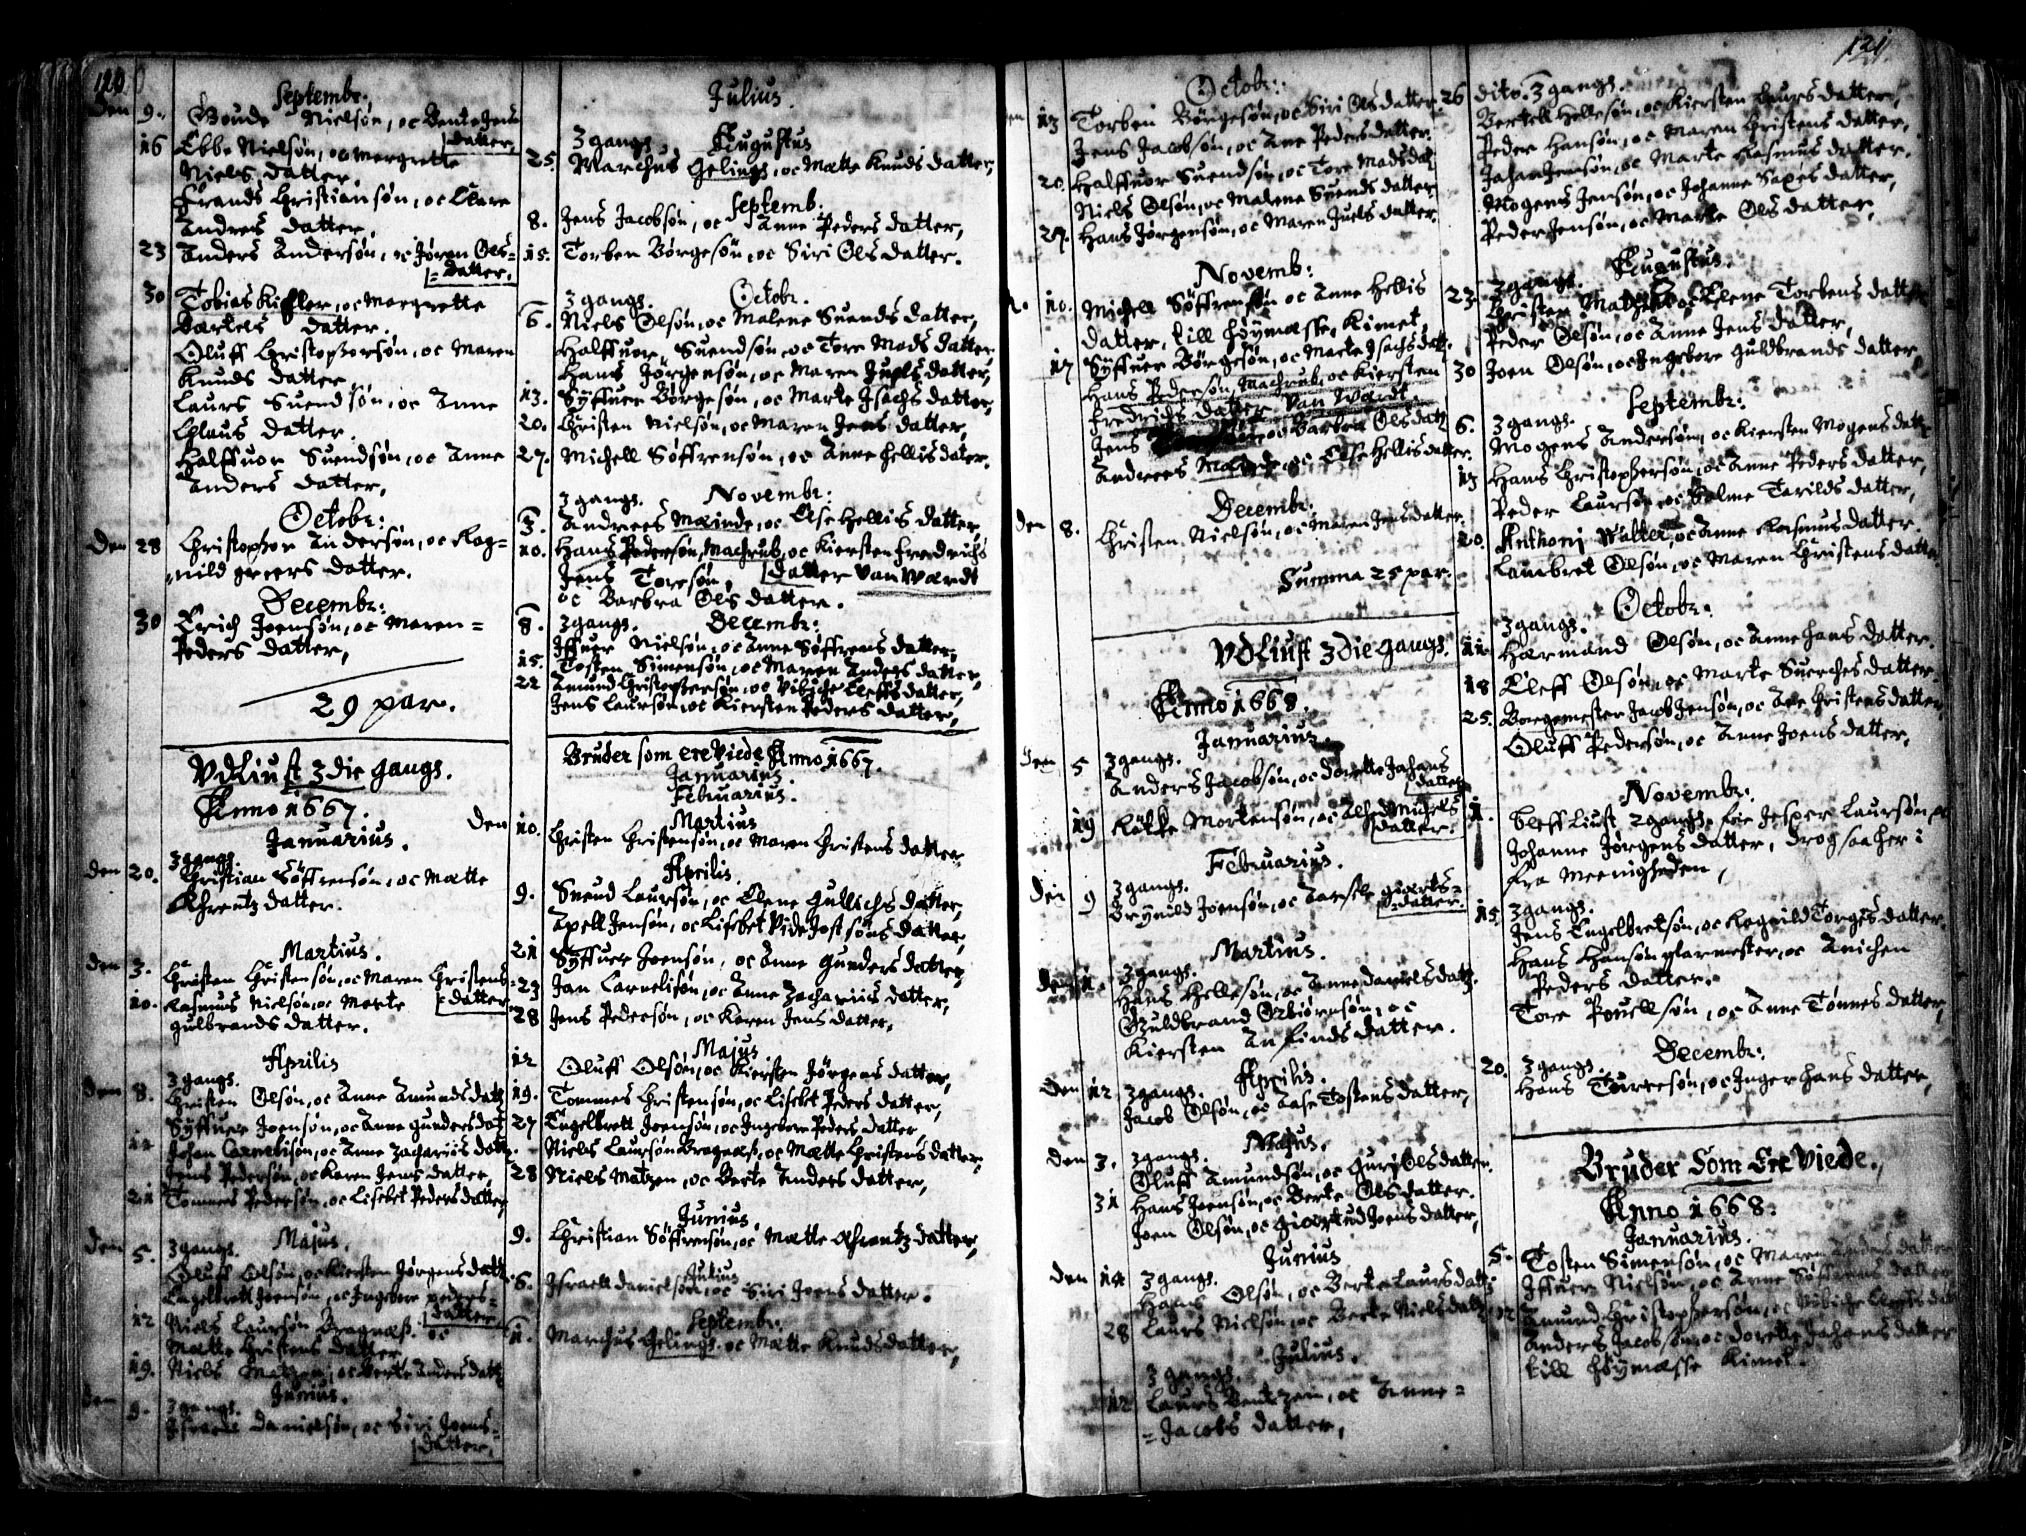 120
Septembr.
Den 9. Goude Nielsøn, oc Bente Jens
datter,
16 Ebbe Nielsøn, oc Margrette
Niels datter,
Frands Christiansøn, oc Clare
Andres datter,
23 Anders Andersøn, oc Jøren Ols=
=datter,
30 Tobias Kisler, oc Margrette
Bartels datter.
Oluff Christophersøn, oc Maren
Knuds datter,
Laurs Suendsøn, oc Anne
Claus datter.
Halffuor Suendsøn, oc Anne
Anders datter,
Octobr:
Den 28 Christopher Andersøn, oc Rag=
nild datter.
Decembr:
30 Erich Joensøn, oc Maren=
Peders datter,
29 par.
VdLiust 3die gangs.
Anno 1667.
Januarius.
3 gangs.
Den 20. Christian Søffrensøn, oc Mætte
Ahrentz datter.
Martius.
Den 3. Christen Christensøn, oc Maren Christens
datter
10. Rasmus Nielsøn, oc Marte
gulbrands datter.
Aprilis
3 gangs.
Den 8. Christen Olsøn, oc Anne Amunds datt
Syffuer Joensøn, oc Anne gunders dat
Johan Cornelisøn, oc Anne Zachariis datt
Jens Pedersøn, oc Karen Jens datter,
21 Tommes Pedersøn, oc Lisebet Peders datter
Majus.
Den 5. 3 gangs.
Oluff Olsøn, oc Kiersten Jørgens datt
Engelbrett Joensøn, oc Ingebore peders=
datter
12 Niels Laursøn Bragnæs. oc
Mætte Christens datter
19. Niels Matzen, oc Berte Anders datt
Junius.
Den 9. 3 gangs.
Israell Danielsøn, oc Siri Joens=
datter,
Julius.
3 gangs. Augustus
25. Marchus Gelings, oc Mætte Knuds datter,
Septemb.
8. Jens Jacobsøn, oc Anne Peders datter,
15. Torben Børgesøn, oc Siri Ols datter.
3 gangs. Octobr.
6. Niels Olsøn, oc Malene Suends datter,
Halffuor Suendsøn, oc Tore Mads datter
Hans Jørgensøn, oc Maren Juels datter,
13. Syffuer Børgesøn, oc Marte Isachs datter,
20. Christen Nielsøn, oc Maren Jens datter,
27. Michell Søffrensøn, oc Anne Hellis dater.
3 gangs. Novembr:
3. Andrees Mæinde, oc Else Hellis datter
10. Hans Pedersøn, Machrub, oc Kiersten Fredrichs
datter Van Wardt
Jens Toresøn,
oc Barbra Ols datter.
8. 3 gangs. Decembr:
Iffuer Nielsøn, oc Anne Søffrens datter,
15. Tosten Simensøn, oc Maren Anders datter,
22 Amund Christophersøn, oc Vibiche Eleffs datter,
Jens Laursøn, oc Kiersten Peders datter,
Bruder som ere Viede Anno 1667.
Januarius.
Februarius.
Martius
Den 10. Christen Christensøn, oc Maren Christens datter
Aprilis
9. Suend Laursøn, oc Elene Gullichs datter,
Apell Jensøn, oc Lisebet Vide Jostsøns datter,
21 Syffuer Joensøn, oc Anne Gunders datter,
23 Jan Carnelisøn, oc Anne Zachariis datter,
28 Jens Pedersøn, oc Karen Jens datter,
Majus
12 Oluff Olsøn, oc Kiersten Jørgens datter,
19. Tommes Christensøn, oc Lisebet Peders datter,
27 Engelbrett Joensøn, oc Ingebore Peders datter
Niels Laursøn Bragnæs, oc Mætte Christens datter,
28 Niels Matzen, oc Berte Anders datter,
Junius.
9. Christian Søffrensøn, oc Mætte Ahrentz datter,
Julius
6. Israell Danielsøn, oc Siri Joens datter.
Septembr.
11. Marchus Gelings, oc Mætte Knuds datter,
121.
Octobr:
13 Torben Børgesøn, oc Siri Ols datter
Jens Jacobsøn, oc Ane Peders datter,
20. Halffuor Suendsøn, oc Tore Mads dat
Niels Olsøn, oc Malene Suends datter,
27. Hans Jørgensøn, oc Maren Juels datter
Novemb:
10. Michell Søffrensøn oc Anne Hellis
datter, till Høymæsse, Kimet
17 Syffuer Børgesøn, oc Marte Isachs datt.
Hans Pedersøn, Machrub, oc Kiersten
Fredrichs datter Van Wardt.
Jens oc Barbra Ols datt
Andrees Mæinde, oc Else Hellis datter.
Decembr.
Den 8. Christen Nielsøn, oc Maren Jens datter.
Summa 25 par.
VdLiust 3die gangs.
Anno 1668.
Januarius.
Den 5 3 gangs.
Anders Jacobsøn, oc Dorette Johans
datter
19 Røtke Mortensøn, oc Michels
datter.
Februarius.
Den 9 3 gangs.
Brynild Joensøn, oc giærts=
=datter.
Martius.
Den 1. 3 gangs.
Hans Hellesøn, oc Anne Daniels datt.
Guldbrand Asbiørnsøn, oc
Kiersten Anfinds datter.
Aprilis.
Den 12 3 gangs.
Jacob Olsøn, oc Aase Tostens datter,
Majus.
Den 3. 3 gangs.
Oluff Amundsøn, oc Guri Ols datter.
31 Hans Joensøn, oc Berte Ols datter.
Joen Olsøn, oc Giertrud Joens datter,
Junius
Den 14 3 gangs.
Hans Olsøn, oc Berte Laurs datt.
28 Laurs Nielsøn, oc Berte Niels datt,
Julius.
3 gangs.
12 Laurs Bentzen, oc Anne=
=Jacobs datter,
26 dito. 3 gangs.
Bertell Hellesøn, oc Kiersten Laurs datter,
Peder Hansøn, oc Maren Christens datter,
Johan Jensøn, oc Marte Rasmus datter.
Mogens Jensøn, oc Johanne Saxes datter,
Peder Jensøn, oc Marte Ols datter,
Augustus.
23. 3 gangs.
Christen Matzen, oc Elene Torbens datter
Peder Olsøn, oc Anne Jens datter,
30 Joen Olsøn, oc Ingebore Guldbrands datter,
Septembr:
6. 3 gangs.
Mogens Andersøn, oc Kiersten Mogens datt.
13 Hans Christophersøn, oc Anne Peders datter,
Peder Laursøn, oc Holme Tarilds datter,
20. Anthoni Walter, oc Anne Rasmus datter.
Lambret Olsøn, oc Maren Christens datt.
Octobr:
3 gangs.
11 Harmand Olsøn, oc Anne Hans datter.
18 Eleff Olsøn, oc Marte Suerches datter.
25. Borgemester Jacob Jensøn, oc Ane Christens datter,
Oluff Pedersøn, oc Anne Joens datter,
Novembr:
1. bleff Liust 2 gangs. for Jesper Laursøn, oc
Johanne Jørgens datter, drog saa her i
fra Meenigheden,
15. 3 gangs.
Jens Engelbretsøn, oc Ragnild Torgis datter.
Hans Hansøn glarmester, oc Anichen
Peders datter.
Tore Pouellsøn, oc Anne Tønnes datter,
Decembr:
20. 3 gangs.
Hans Tourresøn, oc Inger Hans datter,
Bruder Som Ere Viede.
Anno 1668.
Januarius.
5. Tosten Simensøn, oc Maren Anders datter
Iffuer Nielsøn, oc Anne Søffrens datter
12 Amund Christophersøn, oc Vibiche Eleffs dat
Anders Jacobsøn, oc Dorette Johans datter
till Høymæsse Kimet.